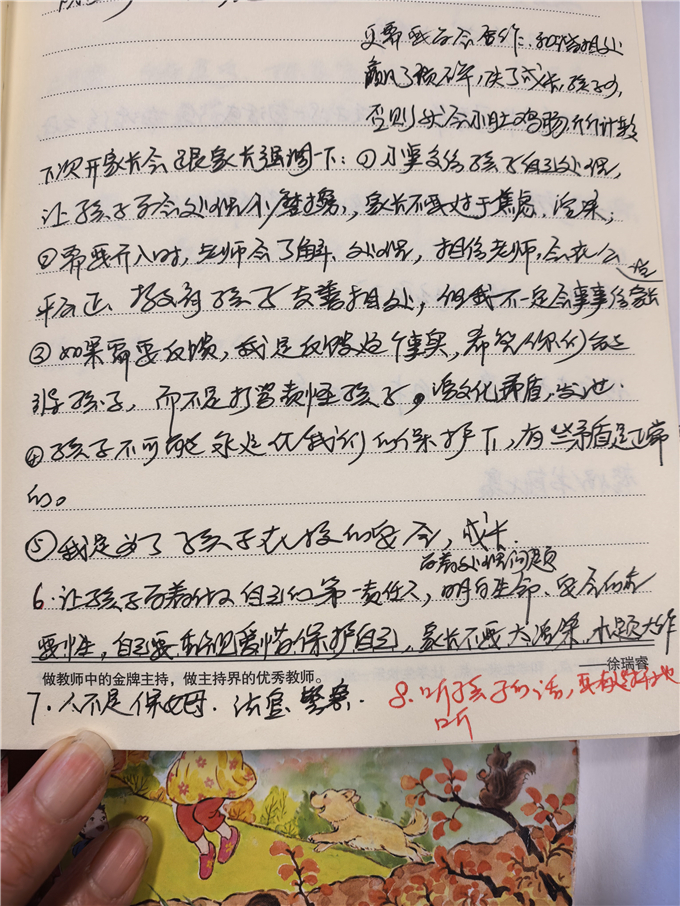 更需要学会合作、和谐相处
赢了输不平,失了成长,孩子
否则就会小肚鸡肠,斤斤计较
下次开家长会跟家长强调一下:①小事交给孩子自己处理,
让孩子学会处理小摩擦,家长不要过于焦虑、
②需要介入时,老师会了解、处理,相信老师,会在公
平公正 教育孩子友善相处,但我不一定会事事给家长
③如果需要反馈,我是反馈这个事实,希望你们
孩子,而不是打骂责怪孩子。激化矛盾,
④孩子不可能永远在我们的保护下,有些矛盾是正常
的。
⑤我是为了孩子在校的安全,成长.
学着处理问题
6.让孩子学着做自己的第一责任人,明白生命、安全的重
要性,自己要重视爱惜保护自己,家长不要大 小题大作
做教师中的金牌主持,做主持界的优秀教师。 ——徐瑞睿
7.人不是保姆.法官.警察.
8.听孩子的话,要有选择地
听